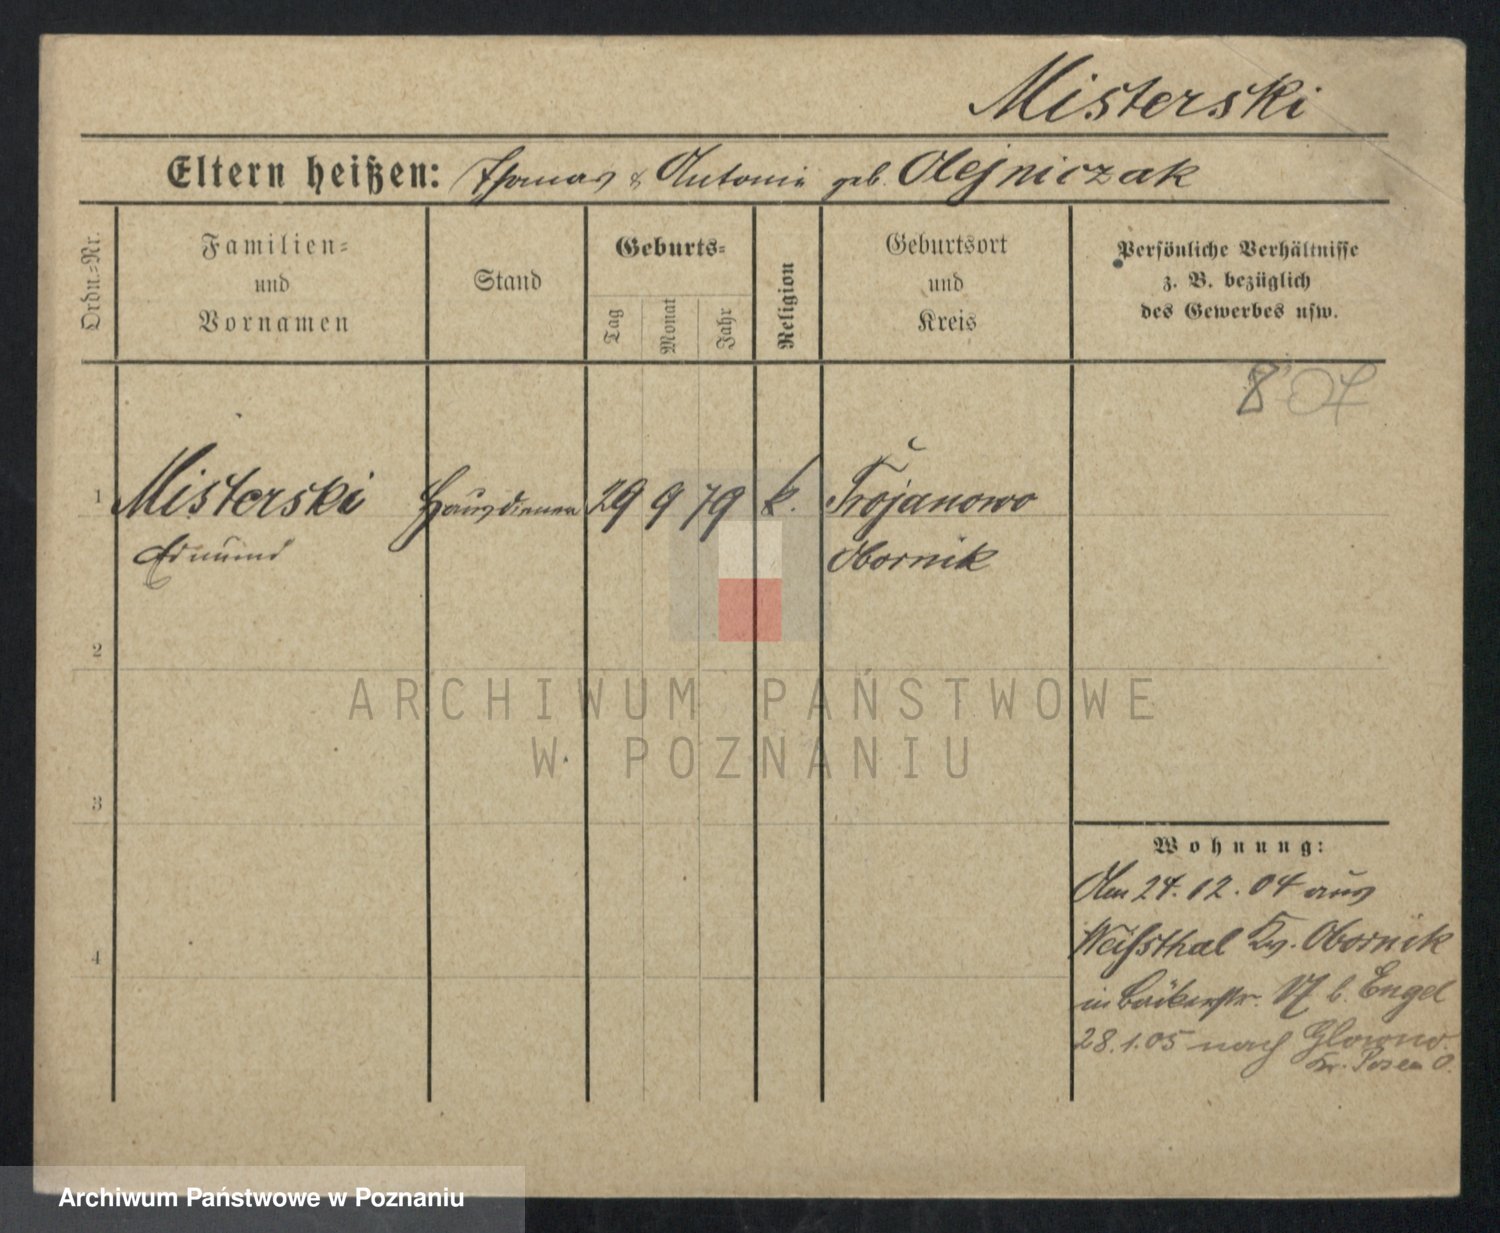 Misterski
Eltern heißen: Thomas & Antonie geb. Olejniczak
Ordn.=Nr.
Familien=
und
Vornamen
Stand
Geburts=
Tag
Monat
Jahr
Religion
Geburtsort
und
Kreis
Persönliche Verhältnisse
z. B. bezüglich
des Gewerbes usw.
1 Misterski Hausdiener 29 9 79 k. Trojanowo
Edmund Obornik
2
3
4
Wohnung:
Am 24.12.04 aus
Weißsthal Kr. Obornik
in Bäckerstr. b. Engel
28.1.05 nach Glowno
Kr. Posen O.
ARCHIWUM PAŃSTWOWE
W POZNANIU
Archiwum Państwowe w Poznaniu